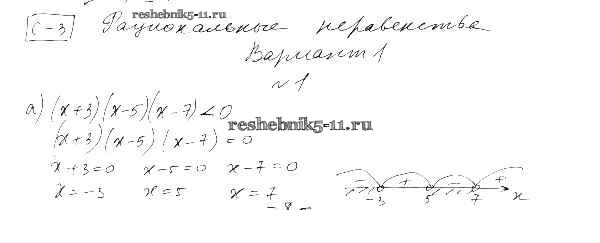 reshebnik5-11.ru
С-3 Рациональные неравенства
Вариант 1
№1
а) (x+3)(x-5)(x-7)<0
(x+3)(x-5)(x-7)=0
reshebnik5-11.ru
x+3=0 x-5=0 x-7=0
x=-3 x=5 x=7
- + - +
-3 5 7 x